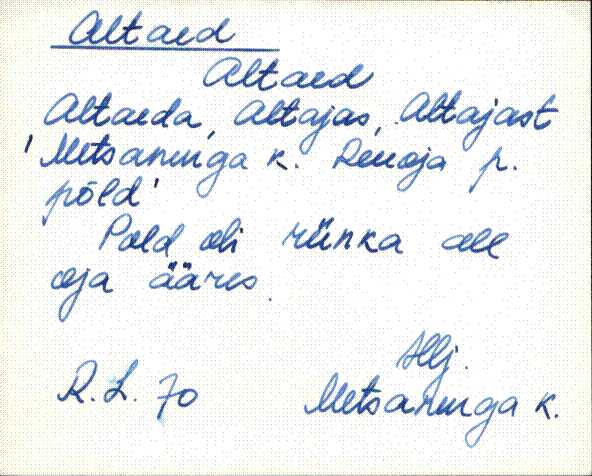 Altaed
Altaed
Altaeda, Altajas, Altajast
'Metsanurga k. Renoja p.
põld'
Põld oli rünka all
oja ääres.
Hlj.
R. L. 70 Metsanurga k.